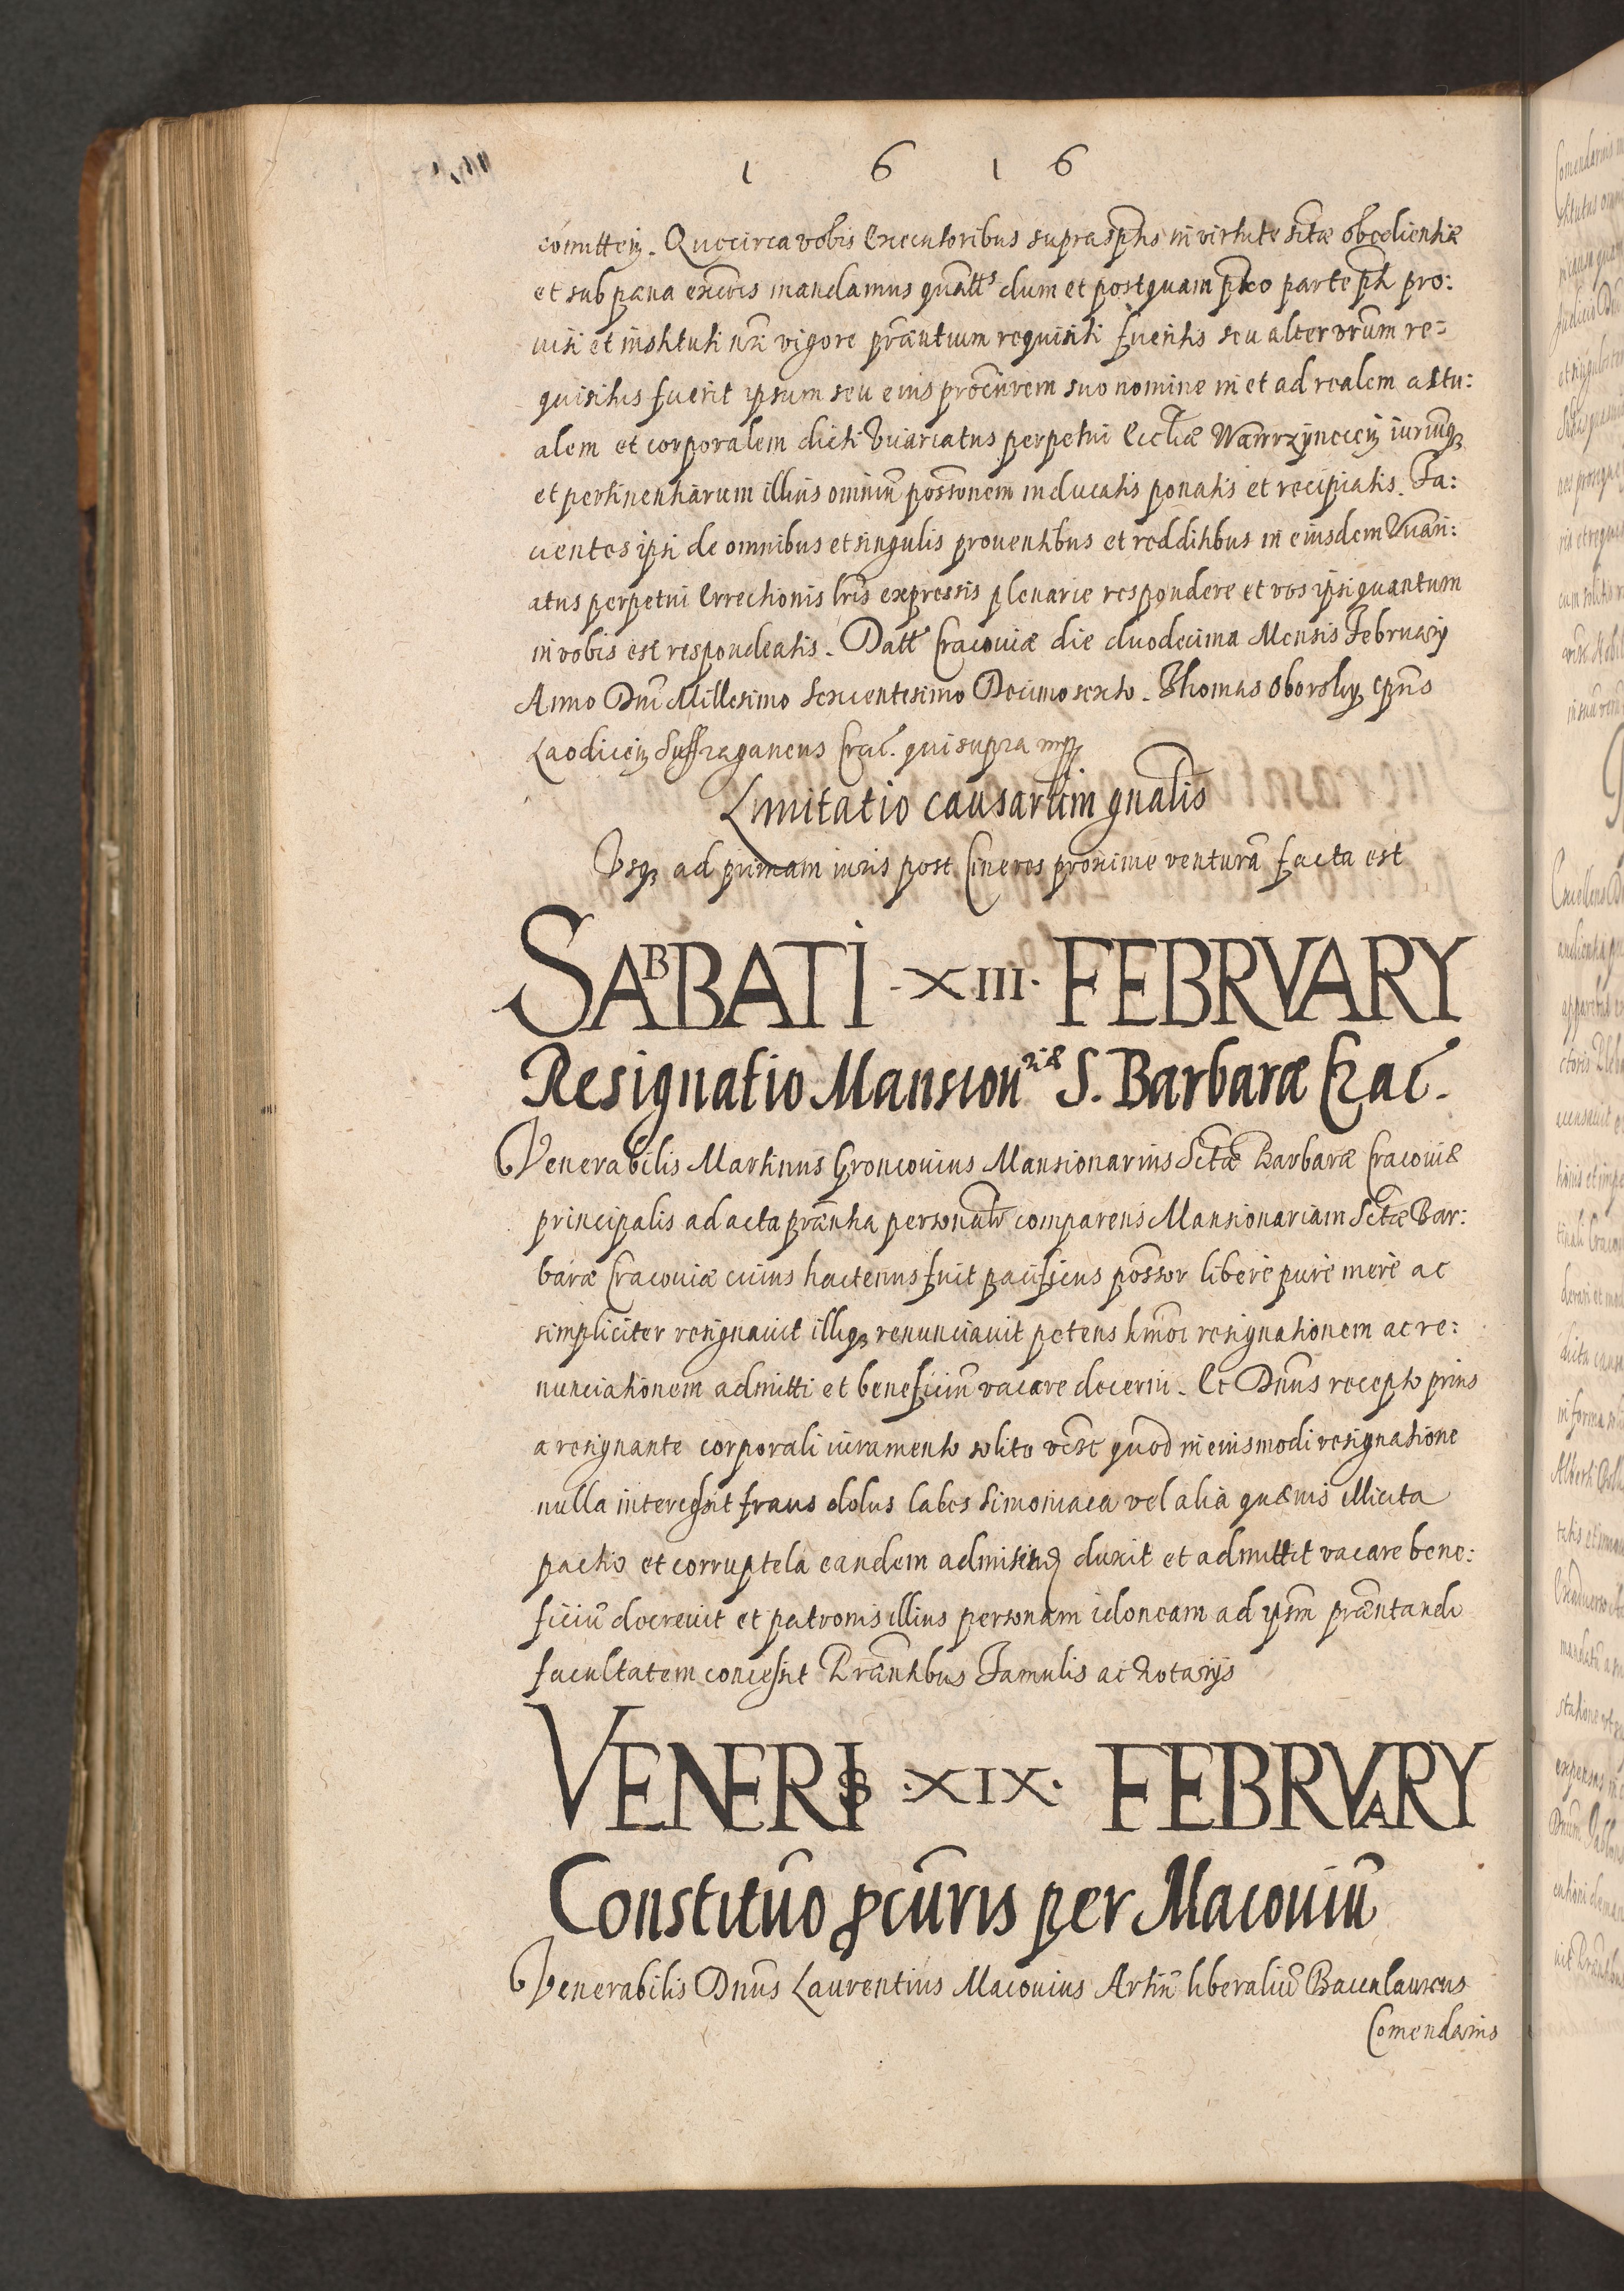 1 6 1 6
cōmitteñ. Quocirca vobis Executoribus supraspt̃is in virtute sctæ obœdientiæ
et sub pæna exc̃cois mandamus quãtt⁹ dum et postquam pro parte pti pro:
uisi et instituti nr̃i vigore præñtium requisiti fueritis seu alter vrũm re=
quisitus fuerit ipsum seu eius procũrem suo nomine in et ad realem actu:
alem et corporalem dicti Vicariatus perpetui Eccliæ Wawrzynecen iuriũq3
et pertinentiarum illius omniũ possõnem inducatis ponatis et recipiatis. Fa:
cientes ipsi de omnibus et singulis prouentibus et redditibus in eiusdem Vicari:
atus perpetui Errectionis lr̃is expressis plenarie respondere et vos ipsi quantum
in vobis est respondeatis. Datt Cracouiæ die duodecima Mensis February
Anno Dnĩ Millesimo Sexcentesimo Decimo sexto. Thomas Oborsky Epũs
Laodiceñ Suffraganeus Crac. qui supra mpp
Limitatio causarum gnãlis
Vsq3 ad primam iuris post Cineres proxime venturã facta est
SABBATI ·XIII· FEBRVARY
Resignatio Mansionriæ S. Barbaræ Crac.
Venerabilis Martinus Groncouius Mansionarius Sctæ Barbaræ Cracouiæ
principalis ad acta præñtia personalr comparens Mansionariam Sctæ Bar:
baræ Cracouiæ cuius hactenus fuit pacificus possor libere pure mere ac
simpliciter resignauit illiq3 renunciauit petens hmõi resignationem ac re:
nunciationem admitti et beneficiũ vacare decerni. Et Dnũs recepto prius
a resignante corporali iuramento solito vcz̃t quod in eiusmodi resignatione
nulla intercessit fraus dolus labes Simoniaca vel alia quæuis illicita
pactio et corruptela eandem admittend duxit et admittit vacare bene:
ficiũ decreuit et patronis illius personam idoneam ad ipsm̃ præñtandi
facultatem concessit Præñtibus Famulis ac Notarijs
VENERIS ·XIX· FEBRVARY
Constitũo pcũris per Macouiũ
Venerabilis Dnũs Laurentius Macouius Artiũ liberaliũ Baccalaureus
Comendarius